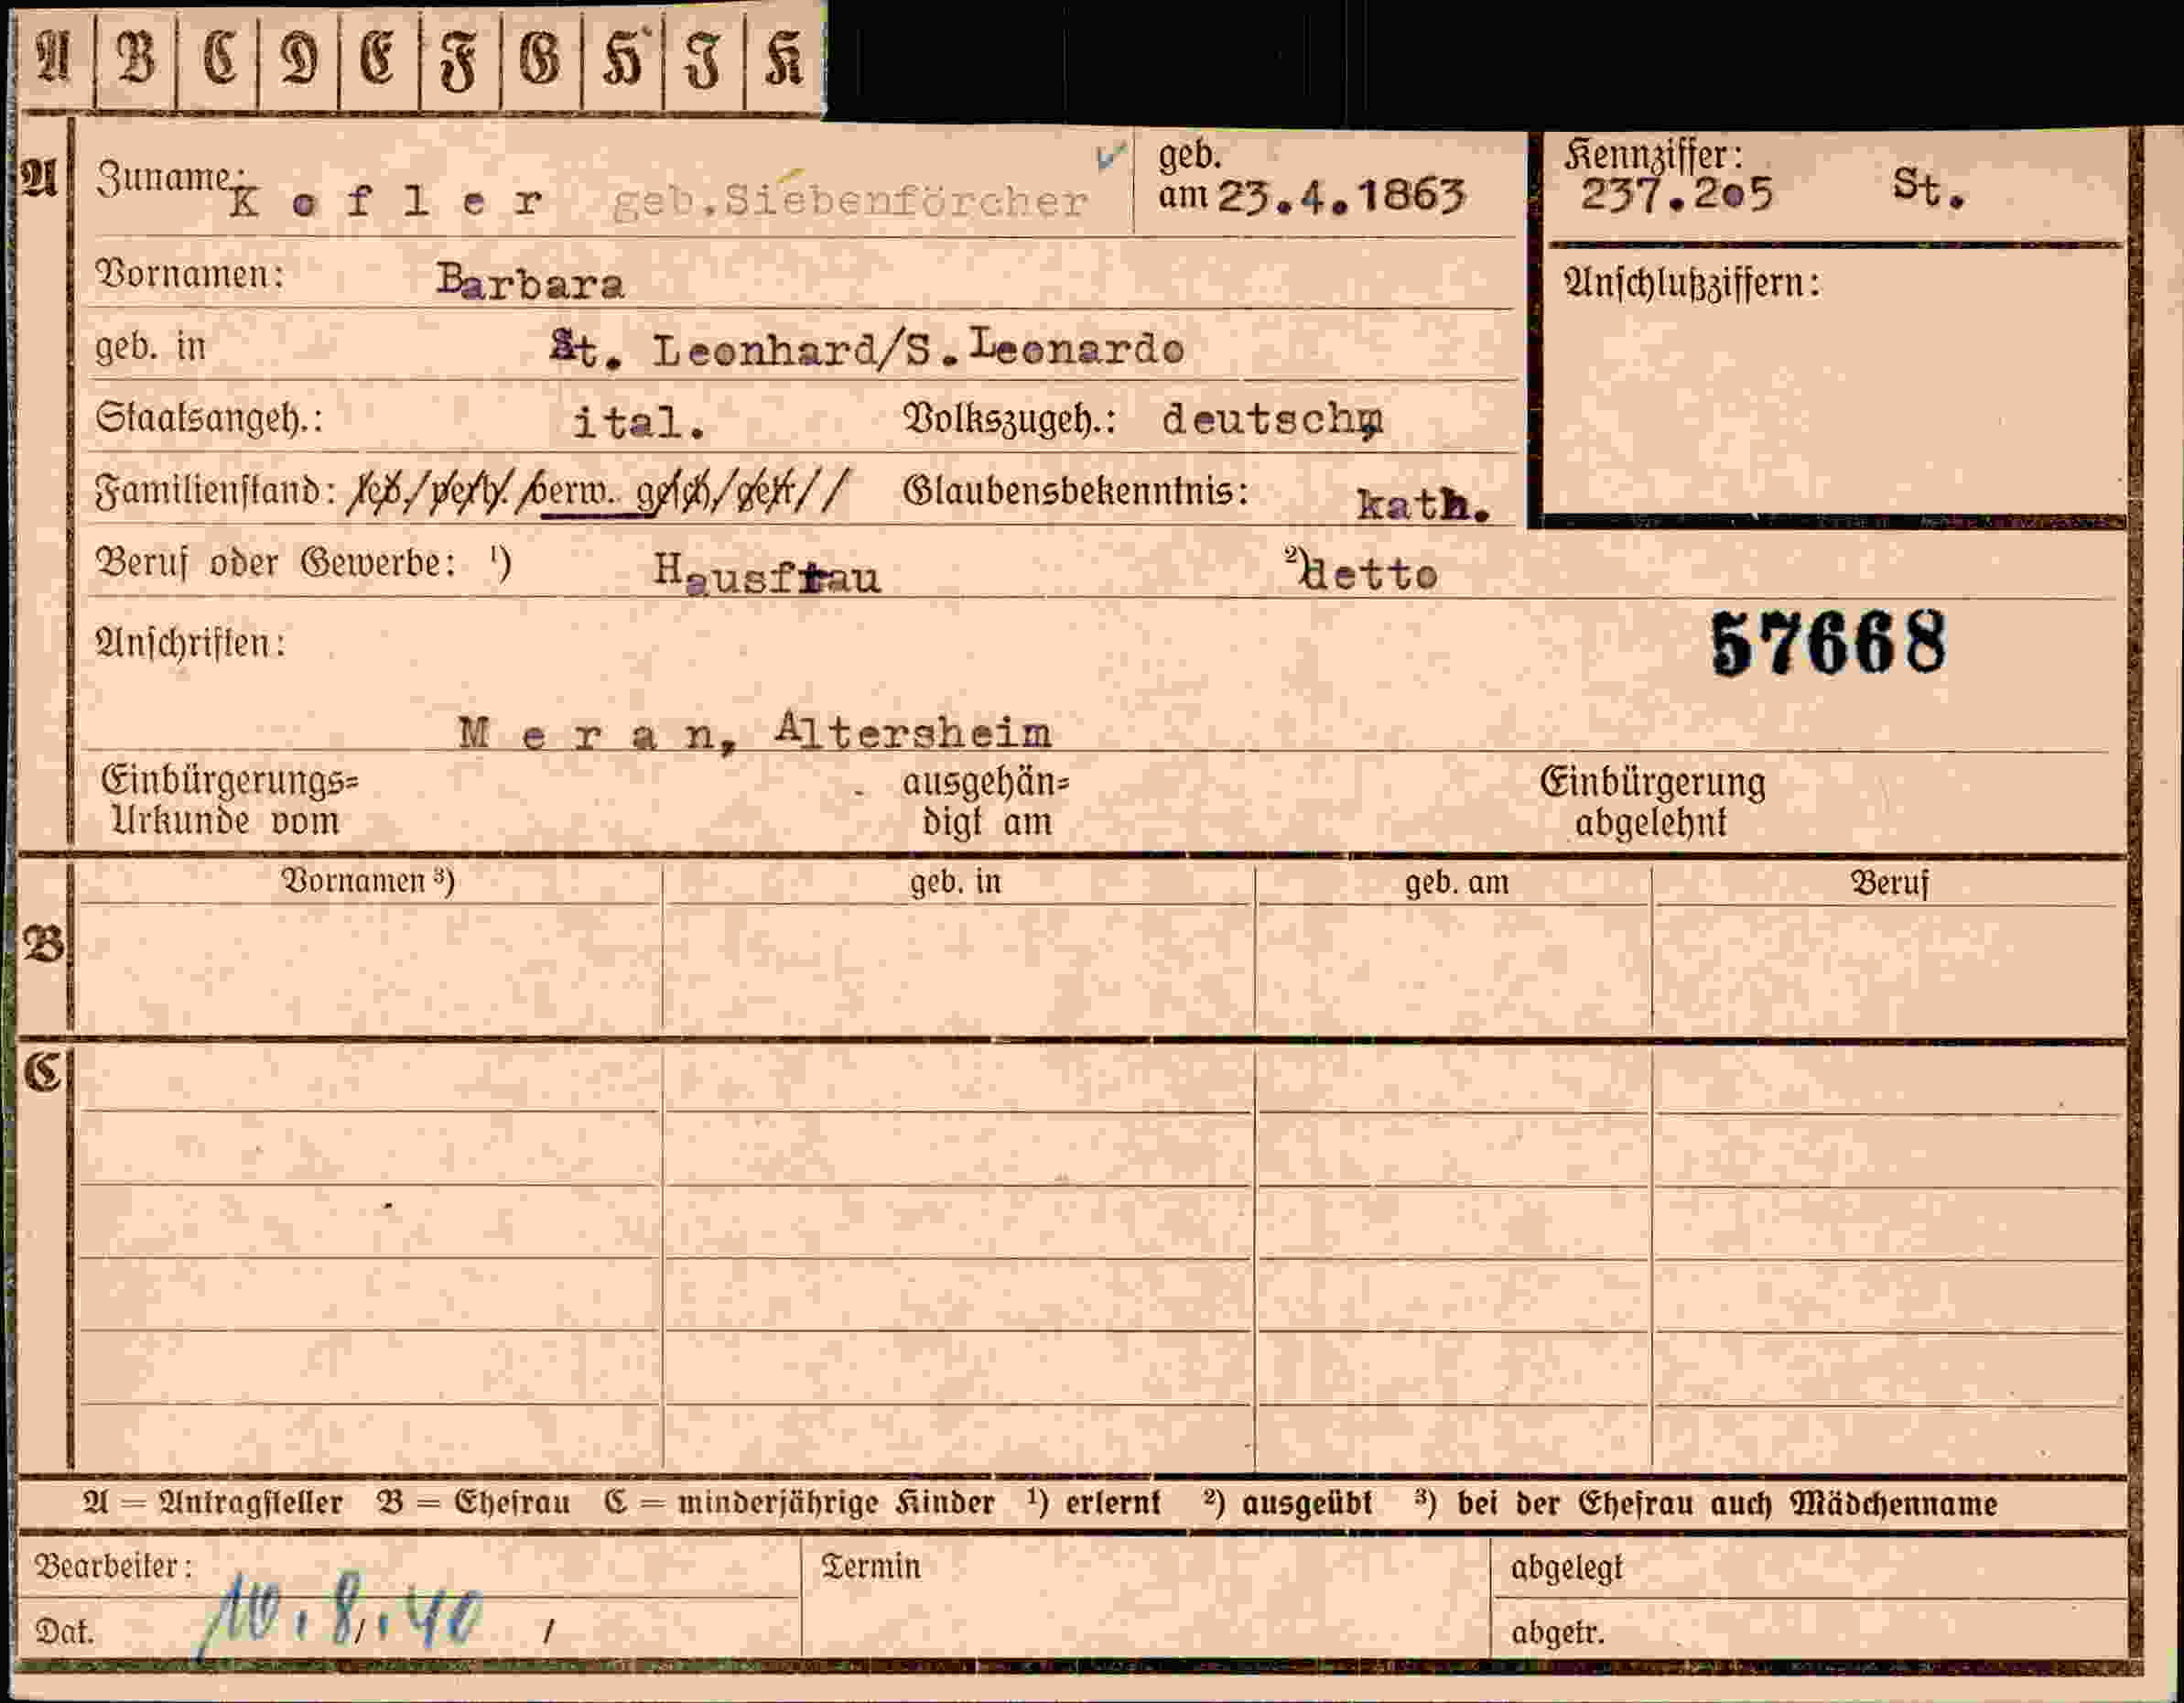 A B C D E F G H I K
A Zuname: Kofler geb.Siebenförcher geb. am 23.4.1863 Kennziffer: 237.205 St.
Vornamen: Barbara Anschlußziffern:
geb. in St. Leonhard/S.Leonardo
Staatsangeh.: ital. Volkszugeh.: deutsch
Familienstand: led./verh./verw. gesch./getr. Glaubensbekenntnis: kath.
Beruf oder Gewerbe: ¹) Hausfrau ²) detto
57668
Anschriften:
Meran, Altersheim
Einbürgerungs= ausgehän= Einbürgerung
Urkunde vom digt am abgelehnt
B Vornamen ³) geb. in geb. am Beruf
C
A = Antragsteller B = Ehefrau C = minderjährige Kinder ¹) erlernt ²) ausgeübt ³) bei der Ehefrau auch Mädchenname
Bearbeiter: Termin abgelegt
Dat. 10.8.40 abgetr.